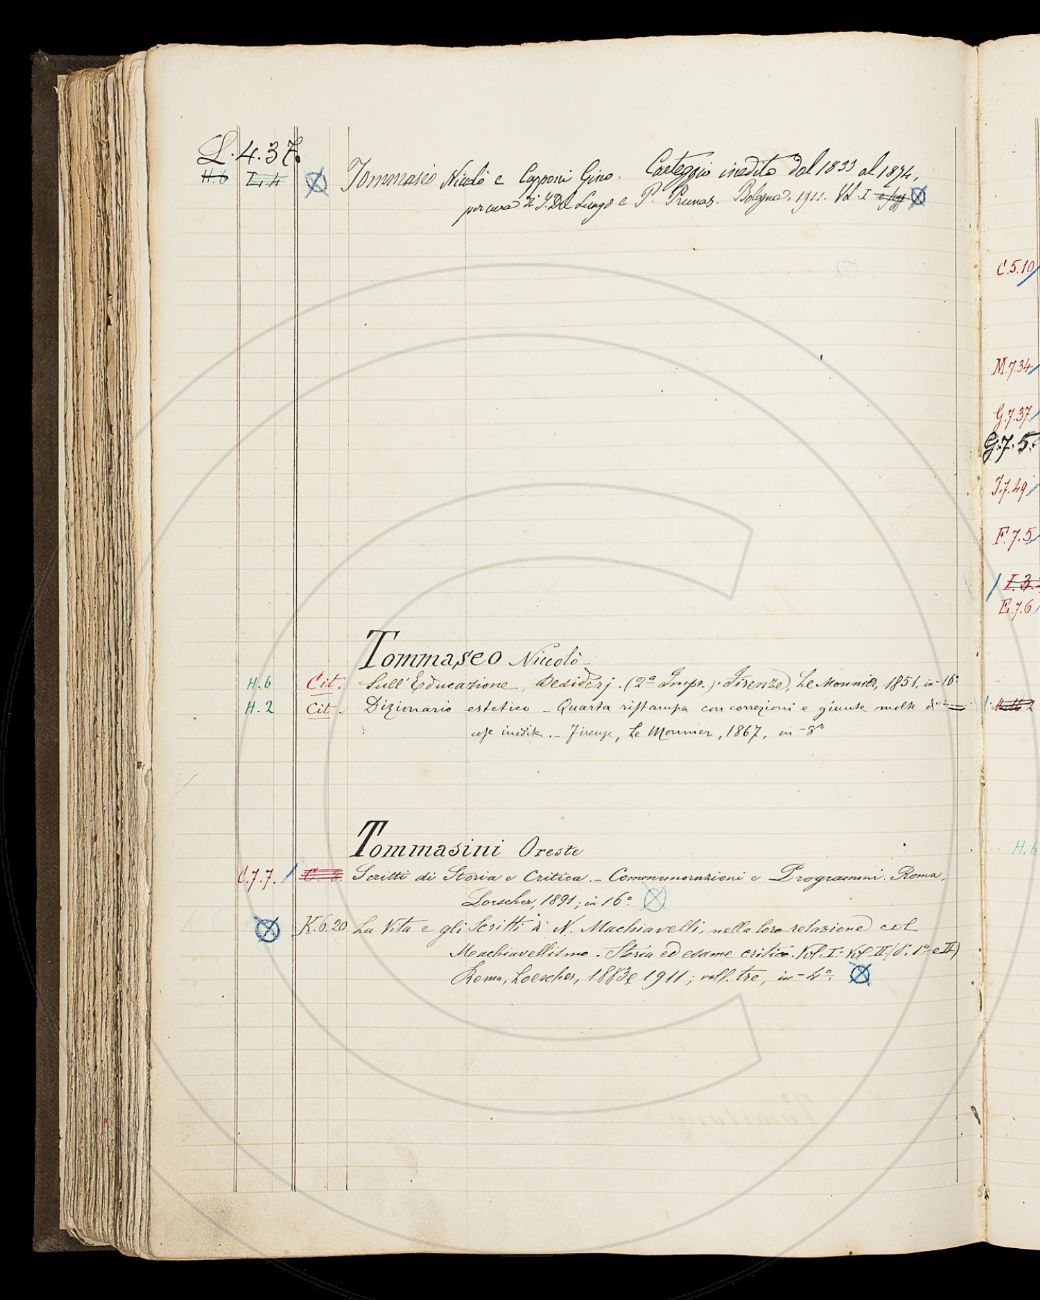 L. 4. 37.
H. 6 L. 4 Tommaseo Nicolò e Capponi Gino. Carteggio inedito dal 1833 al 1874,
per cura di I. Del Lungo e P. Prunas. Bologna, 1911. Vol. I e segg.
Tommaseo Niccolò
H. 6 Cit. Sull'Educazione, Desiderj. (2ª Impr.). Firenze, Le Monnier, 1851, in-16º
H. 2 Cit. Dizionario estetico - Quarta ristampa con correzioni e giunte molte di
cose inedite. - Firenze, Le Monnier, 1867, in-8º
Tommasini Oreste
C. 7. 7. Scritti di Storia e Critica. - Commemorazioni e Programmi. Roma,
Loescher, 1891; in 16º
K. 6. 20 La Vita e gli Scritti di N. Machiavelli, nella loro relazione col
Machiavellismo. Storia ed esame critico. Vol. I. Vol II. (P. 1ª e II)
Roma, Loescher, 1883 e 1911; voll. tre, in-4º.
C. 5. 10
M. 7. 34
G. 7. 37
G. 7. 5.
I. 7. 49
F. 7. 5
I. 3.
E. 7. 6
H. 6